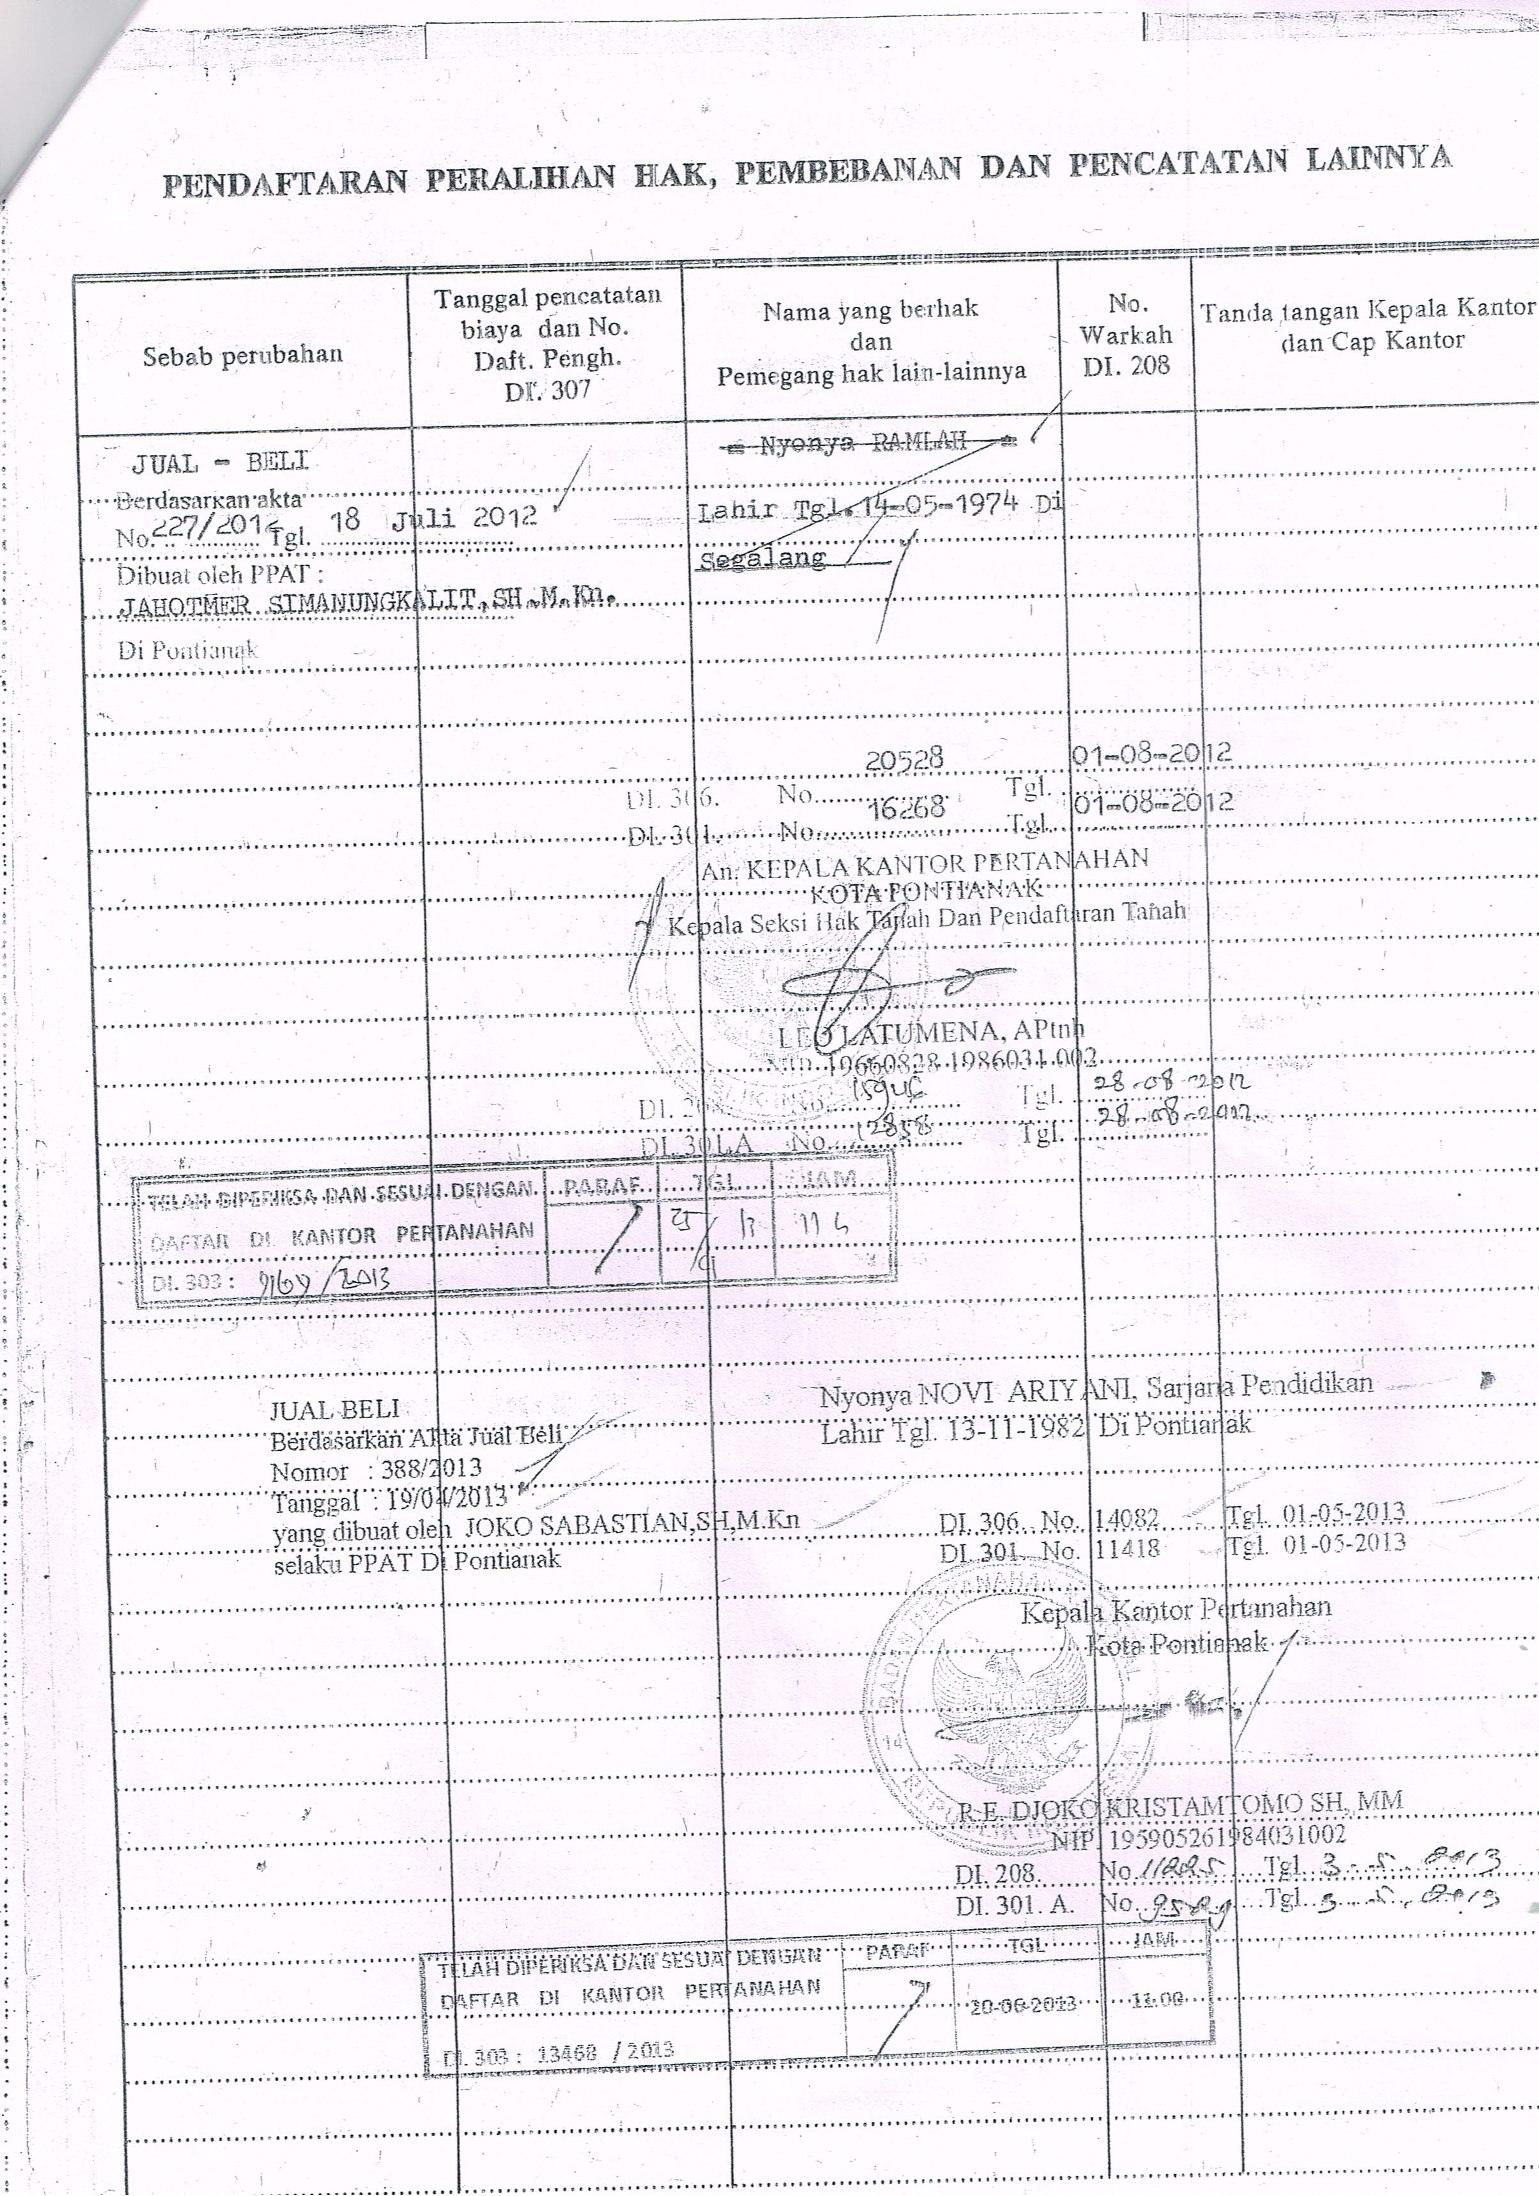 PENDAFTARAN PERALIHAN HAK, PEMBEBANAN DAN PENCATATAN LAINNYA
Sebab perubahan
Tanggal pencatatan
biaya dan No.
Daft. Pengh.
DI. 307
Nama yang berhak
dan
Pemegang hak lain-lainnya
No.
Warkah
DI. 208
Tanda tangan Kepala Kantor
dan Cap Kantor
JUAL - BELI
Berdasarkan akta
No. 227/2012 Tgl. 18 Juli 2012
Dibuat oleh PPAT :
JAHOTMER SIMANUNGKALIT,SH.M.Kn.
Di Pontianak
= Nyonya RAMLAH =
Lahir Tgl.14-05-1974 Di
Segalang
DI. 306. No. 20528 Tgl. 01-08-2012
DI. 301. No. 16268 Tgl. 01-08-2012
An. KEPALA KANTOR PERTANAHAN
KOTA PONTIANAK
Kepala Seksi Hak Tanah Dan Pendaftaran Tanah
LEO LATUMENA, APtnh
NIP. 19660828 1986031 002
DI. No. Tgl. 28-08-2012
DI. 301.A No. 12858 Tgl. 28-08-2012
TELAH DIPERIKSA DAN SESUAI DENGAN PARAF TGL JAM
DAFTAR DI KANTOR PERTANAHAN
DI. 303 : /2013
JUAL BELI
Berdasarkan Akta Jual Beli
Nomor : 388/2013
Tanggal : 19/04/2013
yang dibuat oleh JOKO SABASTIAN,SH,M.Kn
selaku PPAT Di Pontianak
Nyonya NOVI ARIYANI, Sarjana Pendidikan
Lahir Tgl. 13-11-1982 Di Pontianak
DI. 306. No. 14082 Tgl. 01-05-2013
DI. 301. No. 11418 Tgl. 01-05-2013
Kepala Kantor Pertanahan
Kota Pontianak
R.E. DJOKO KRISTAMTOMO SH, MM
NIP. 195905261984031002
DI. 208. No. Tgl. 3-5-2013
DI. 301. A. No. Tgl. 3-5-2013
TELAH DIPERIKSA DAN SESUAI DENGAN PARAF TGL JAM
DAFTAR DI KANTOR PERTANAHAN 20-06-2013 11.00
DI. 303 : 13468 / 2013